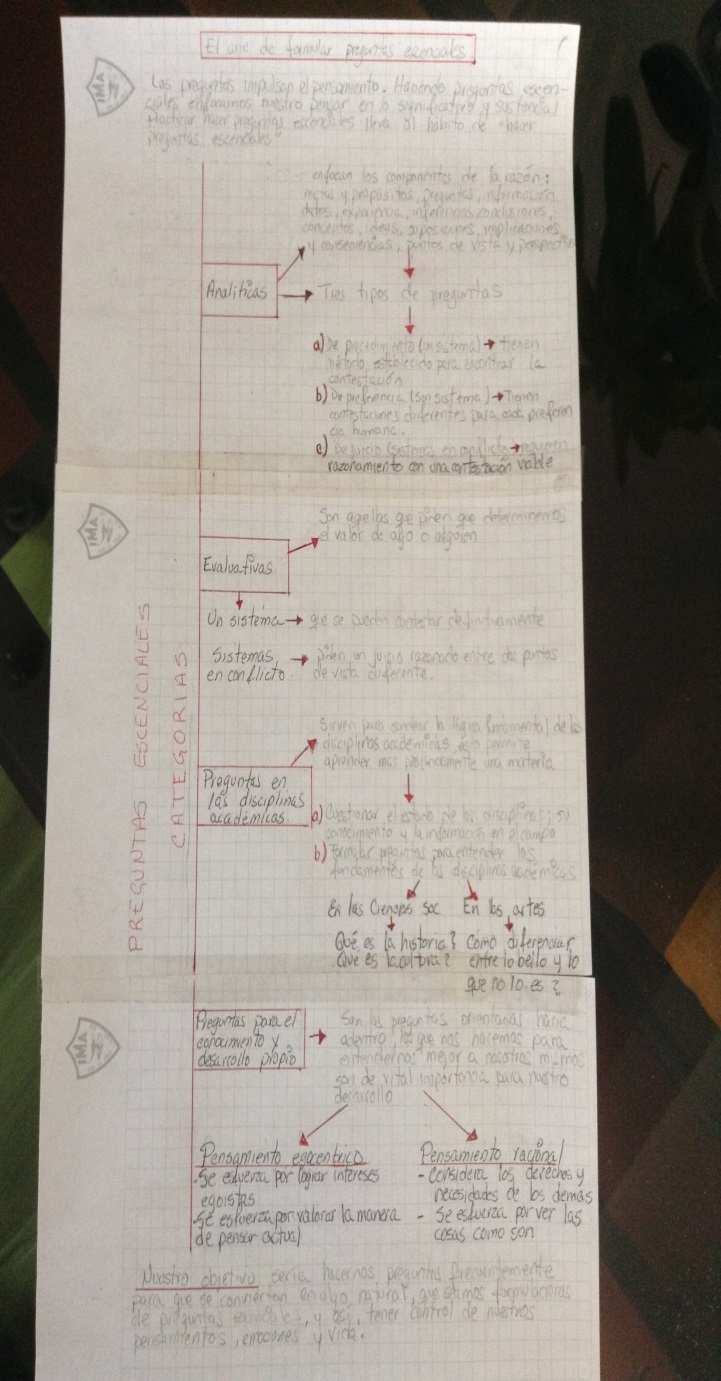 El arte de formular preguntas escenciales
IMA
Las preguntas impulsan el pensamiento. Haciendo preguntas escen-
ciales enfocamos nuestro pensar en lo significativo y sustancial
Practicar hacer preguntas escenciales lleva al hábito de "hacer
preguntas escenciales"
PREGUNTAS ESCENCIALES
CATEGORIAS
Analíticas
enfocan los componentes de la razón:
metas y propósitos, preguntas, información
datos, experiencia, inferencias, conclusiones,
conceptos, ideas, suposiciones, implicaciones
y consecuencias, puntos de vista y perspectivas
Tres tipos de preguntas
a) De procedimiento (un sistema) → tienen
método establecido para encontrar la
contestación
b) De preferencia (sin sistema) → Tienen
contestaciones diferentes para cada preferen
cia humana.
c) De juicio (sistemas en conflicto → requieren
razonamiento con una contestación viable
IMA
Evaluativas
Son aquellas que piden que determinemos
el valor de algo o alguien
Un sistema → que se pueden contestar definitivamente
Sistemas → piden un juicio razonado entre dos puntos
en conflicto. de vista diferente.
Preguntas en
las disciplinas
académicas
Sirven para sondear la lógica fundamental de las
disciplinas académicas, esto permite
aprender mas profundamente una materia
a) Cuestionar el estado de las disciplinas; su
conocimiento y la información en el campo
b) Formular preguntas para entender los
fundamentos de las disciplinas académicas
En las Ciencias soc En las artes
Qué es la historia? Cómo diferenciar
Que es la cultura? entre lo bello y lo
que no lo es?
IMA
Preguntas para el
conocimiento y
desarrollo propio
Son las preguntas orientadas hacia
adentro, las que nos hacemos para
entendernos mejor a nosotros mismos
son de vital importancia para nuestro
desarrollo
Pensamiento egocéntrico
- Se esfuerza por lograr intereses
egoistas
- Se esfuerza por valorar la manera
de pensar actual
Pensamiento racional
- Considera los derechos y
necesidades de los demás
- Se esfuerza por ver las
cosas como son
Nuestro objetivo sería hacernos preguntas frecuentemente
para que se conviertan en algo natural, que seamos formuladores
de preguntas esenciales, y así, tener control de nuestros
pensamientos, emociones y vida.